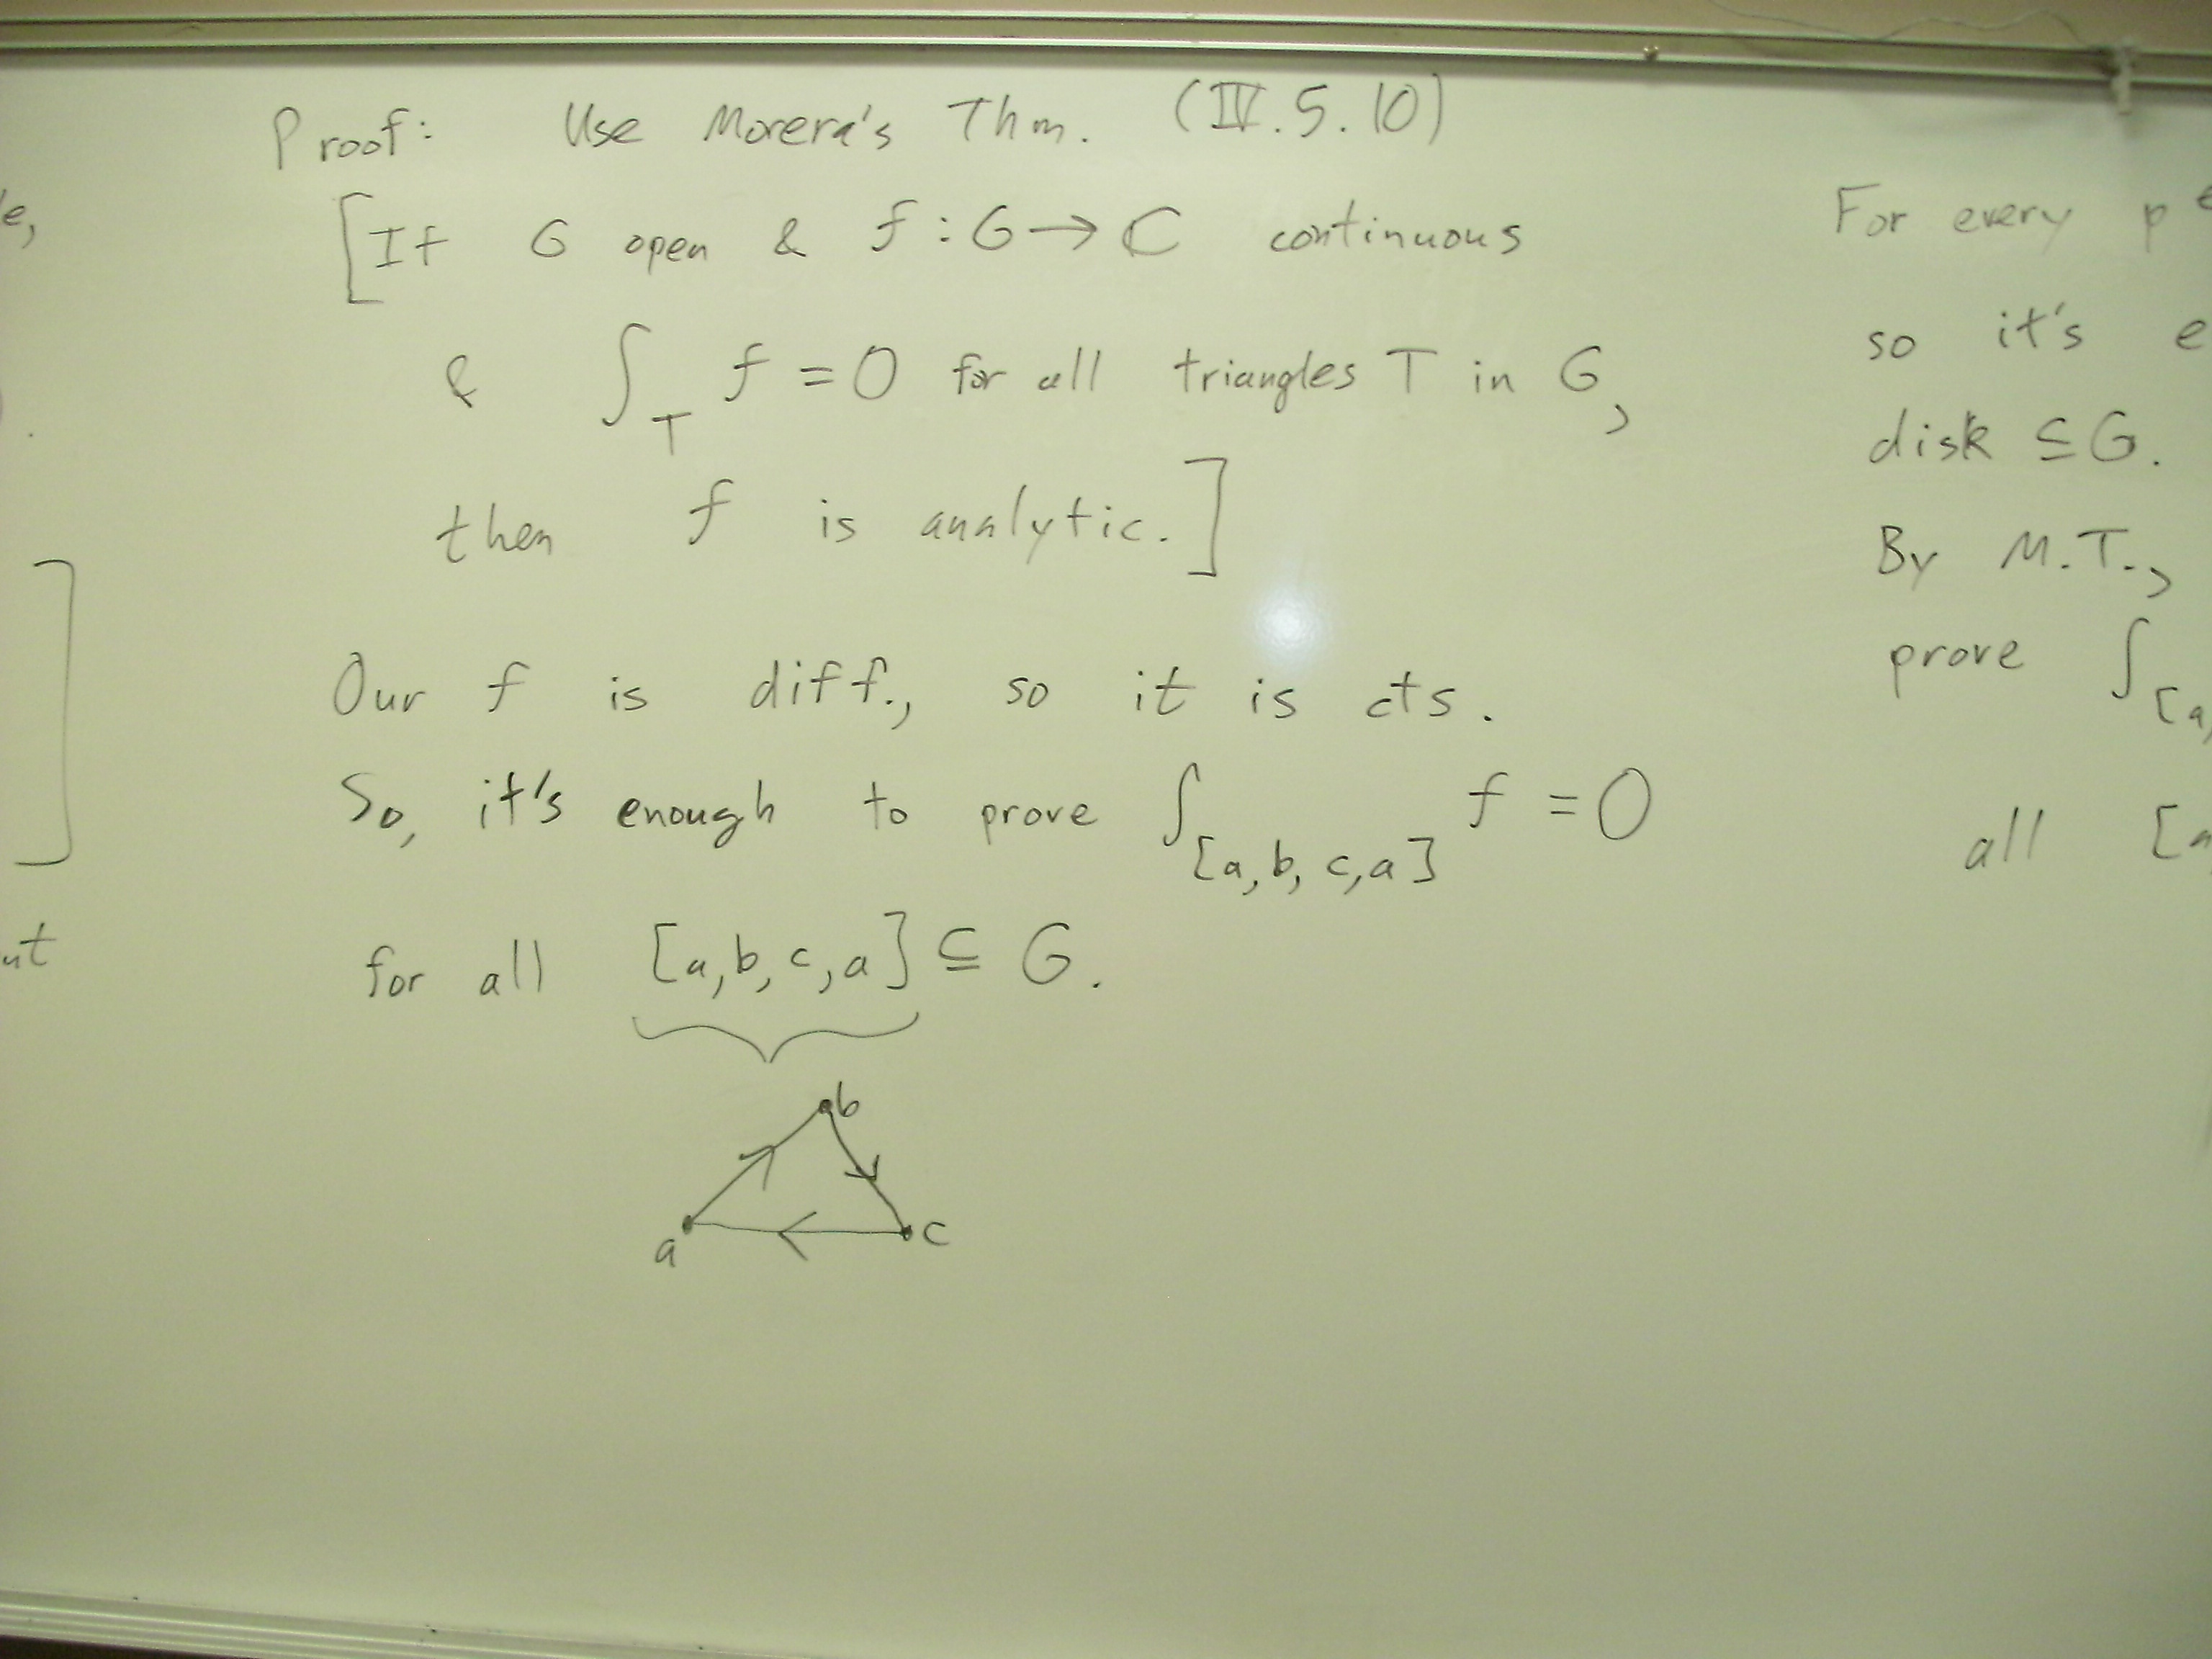 Proof: Use Morera's Thm. (IV.5.10)
[If G open & f : G → ℂ continuous
& ∫_T f = 0 for all triangles T in G,
then f is analytic.]
Our f is diff., so it is cts.
So, it's enough to prove ∫_[a,b,c,a] f = 0
for all [a,b,c,a] ⊆ G.
b
a
c
e,
]
For every p
so it's e
disk ⊆ G.
By M.T.,
prove ∫_[a,
all [a